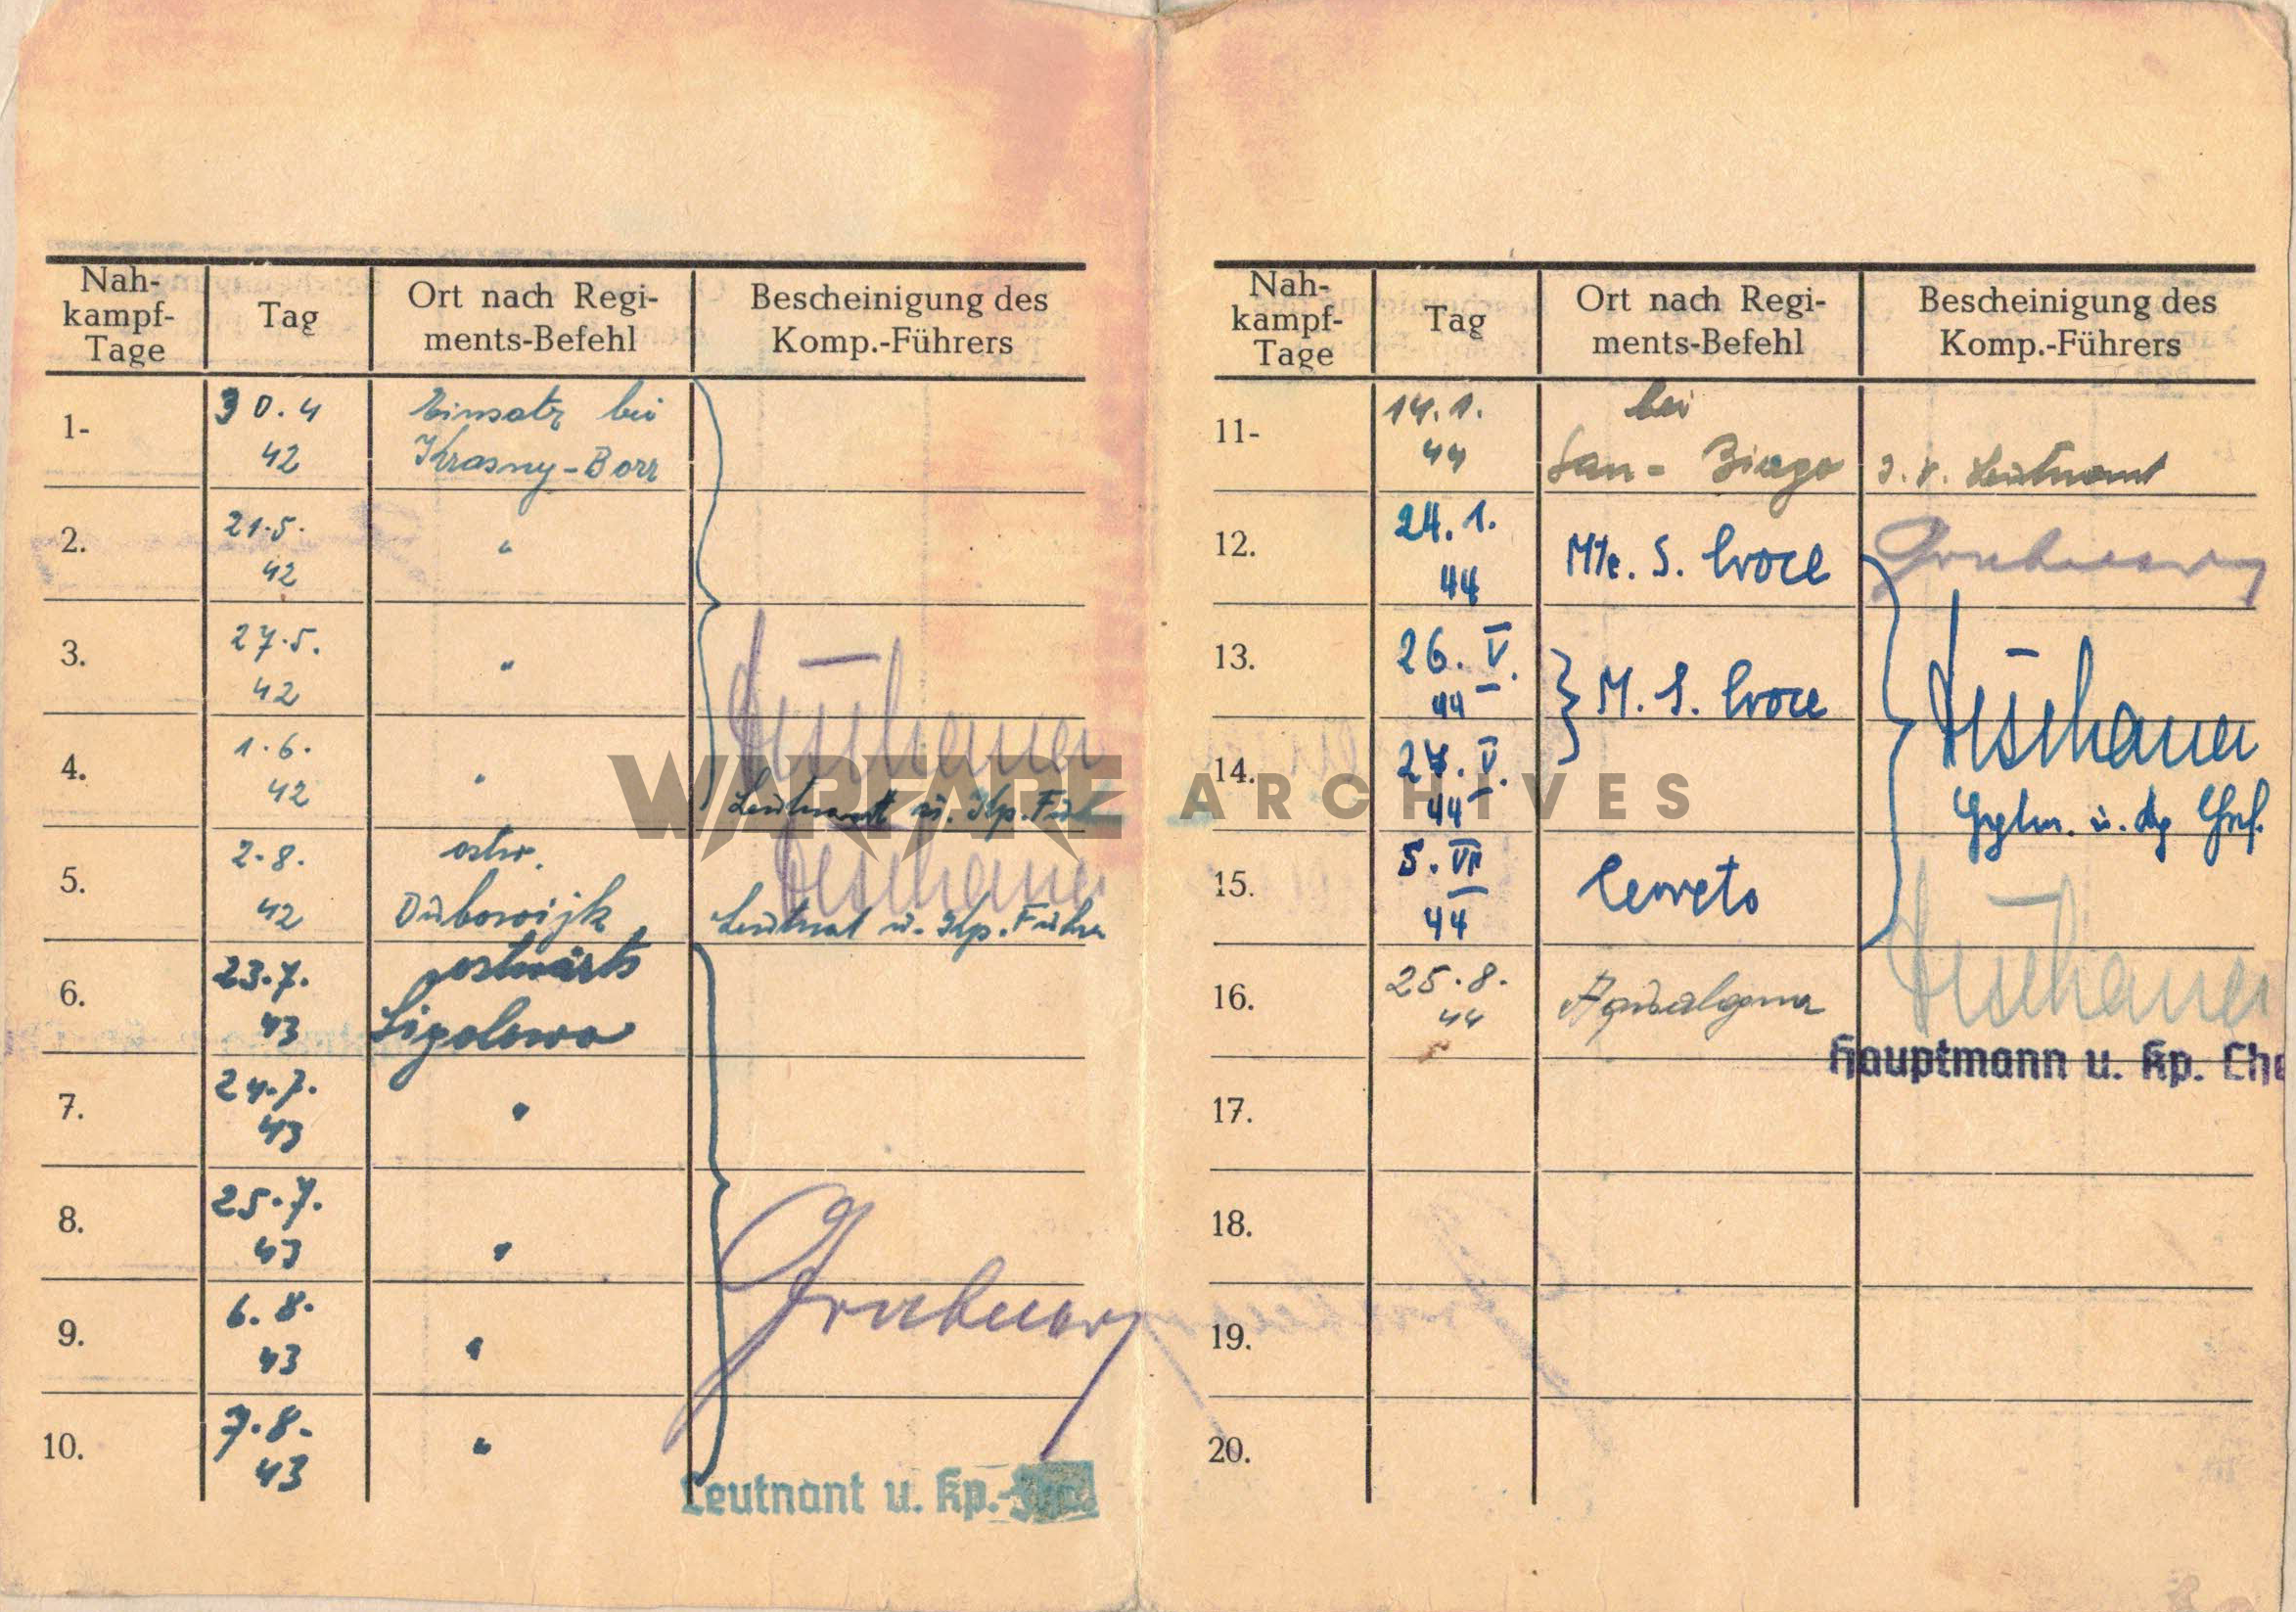 Nah-
kampf-
Tage
Tag
Ort nach Regi-
ments-Befehl
Bescheinigung des
Komp.-Führers
1-
30.4
42
Einsatz bei
Krasny-Borr
2.
21.5.
42
"
3.
27.5.
42
"
4.
1.6.
42
"
Leutnant u. Kp.
5.
2.8.
42
ostw.
Dubowijk
Leutnat u. Kp. Führer
6.
23.7.
43
ostwärts
Sigolowo
7.
24.7.
43
"
8.
25.7.
43
"
9.
6.8.
43
"
10.
7.8.
43
"
Leutnant u. Kp.-
WARFARE ARCHIVES
Nah-
kampf-
Tage
Tag
Ort nach Regi-
ments-Befehl
Bescheinigung des
Komp.-Führers
11-
14.1.
44
bei
San- Biago
Leutnant
12.
24.1.
44
Mte. S. Croce
13.
26. V.
44
M. S. Croce
14.
27. V.
44
u. Kp Chef.
15.
5. VII
44
Cerreto
16.
25.8.
44
Hauptmann u. Kp. Che
17.
18.
19.
20.